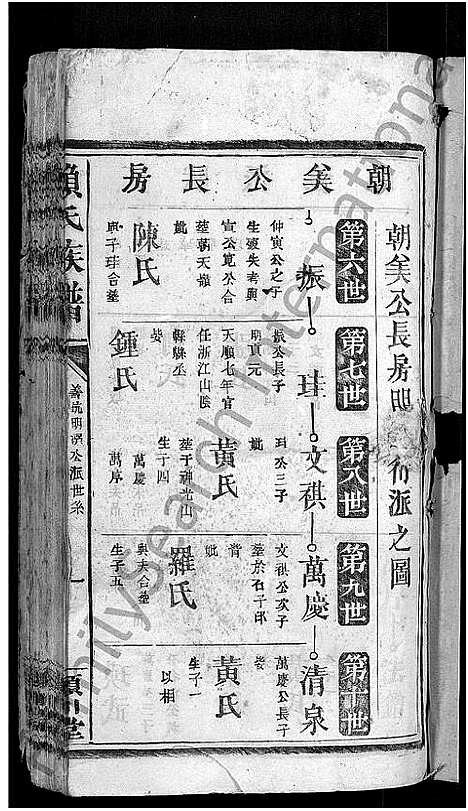 朝矦公長房
朝矦公長房 派之圖
第六世
第七世
第八世
第九世
第十世
振
珪
文祺
萬慶
清泉
仲寅公之子
生歿失考與
寅公寬公合
塟朝天嶺
妣
陳氏
與子珪合塟
振公長子
明貢元
天順七年官
任浙江山陰
縣縣丞
妣
鍾氏
珪公三子
妣
黃氏
塟于神光山
生子四
萬慶
萬庠
文祺公次子
塟於石子邱
妣
羅氏
與夫合塟
生子五
萬慶公長子
妣
黃氏
生子一
以相
賴氏族譜
公派世系
潁川堂
FamilySearch International